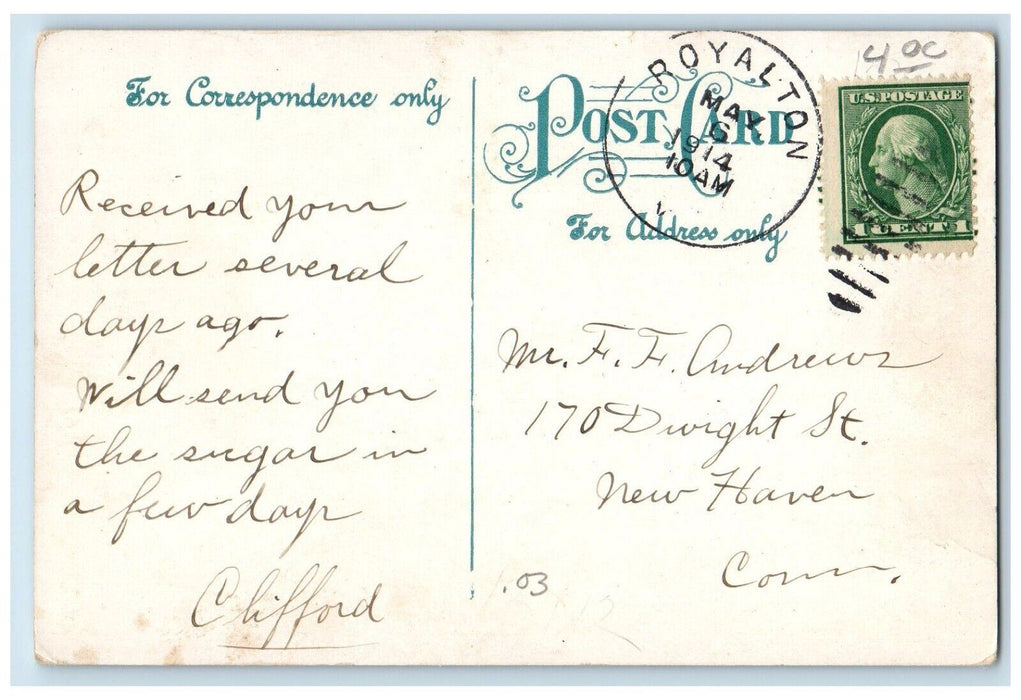 For Correspondence only
POST CARD
For Address only
ROYALTON
MAY
6
1914
10AM
V
4 00
U.S. POSTAGE
1 CENT 1
Received your
letter several
days ago.
Will send you
the sugar in
a few days
Clifford
Mr. F. F. Andrews
170 Dwight St.
New Haven
Conn.
.03